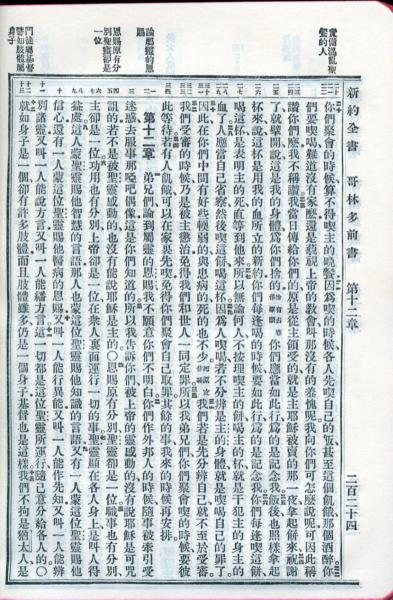 新約全書 哥林多前書 第十二章 二百二十四
責備混亂聖
餐的人
你們聚會的時候、算不得喫主的晚餐因爲喫的時候各人先喫自己的飯甚至這個飢餓那個酒醉你
們要喫喝難道沒有家麽還是藐視上帝的教會叫那沒有的羞愧呢我向你們可怎麽說呢可因此稱
讚你們麽我不稱讚我當日傳給你們的原是從主領受的就是主耶穌被賣的那一夜拿起餅來祝謝
了就擘開說這是我的身體爲你們捨的你們應當如此行爲的是記念我飯後也照樣拿起
杯來說這杯是用我的血所立的新約你們每逢喝的時候要如此行爲的是記念我你們每逢喫這餅
喝這杯是表明主的死直等到他來所以無論何人不按理喫主的餅喝主的杯就是干犯主的身主的
血了人應當自己省察然後喫這餅喝這杯因爲人喫喝若不分辨是主的身體就是喫喝自己的罪了
因此在你們中間有好些輭弱的與患病的死的也不少我們若是先分辨自己就不至於受審
我們受審的時候乃是被主懲治免得我們和世人一同定罪所以我弟兄們你們聚會喫的時候要彼
此等待若有人飢餓可以在家裏先喫免得你們聚會自己取罪其餘的事我來的時候再安排
論屬靈的恩
賜
第十二章 弟兄們論到屬靈的恩賜我不願意你們不明白你們作外邦人的時候隨事被牽引受
迷惑去服事那啞吧偶像這是你們知道的所以我告訴你們被上帝的靈感動的沒有說耶穌是可咒
恩賜原有分
別聖靈卻是
一位
詛的若不是被聖靈感動的也沒有能說耶穌是主的○恩賜原有分別聖靈卻是一位職事也有分別
主卻是一位功用也有分別上帝卻是一位在衆人裏面運行一切的事聖靈顯在各人身上是叫人得
益處這人蒙聖靈賜他智慧的言語那人也蒙這位聖靈賜他知識的言語又有一人蒙這位聖靈賜他
信心還有一人蒙這位聖靈賜他醫病的恩賜又叫一人能行異能又叫一人能作先知又叫一人能辨
別諸靈又叫一人能說方言又叫一人能繙方言這一切都是這位聖靈所運行隨己意分給各人的○
門徒屬基督
譬如肢體屬
身子
就如身子是一個卻有許多肢體而且肢體雖多仍是一個身子基督也是這樣我們不拘是猶太人是